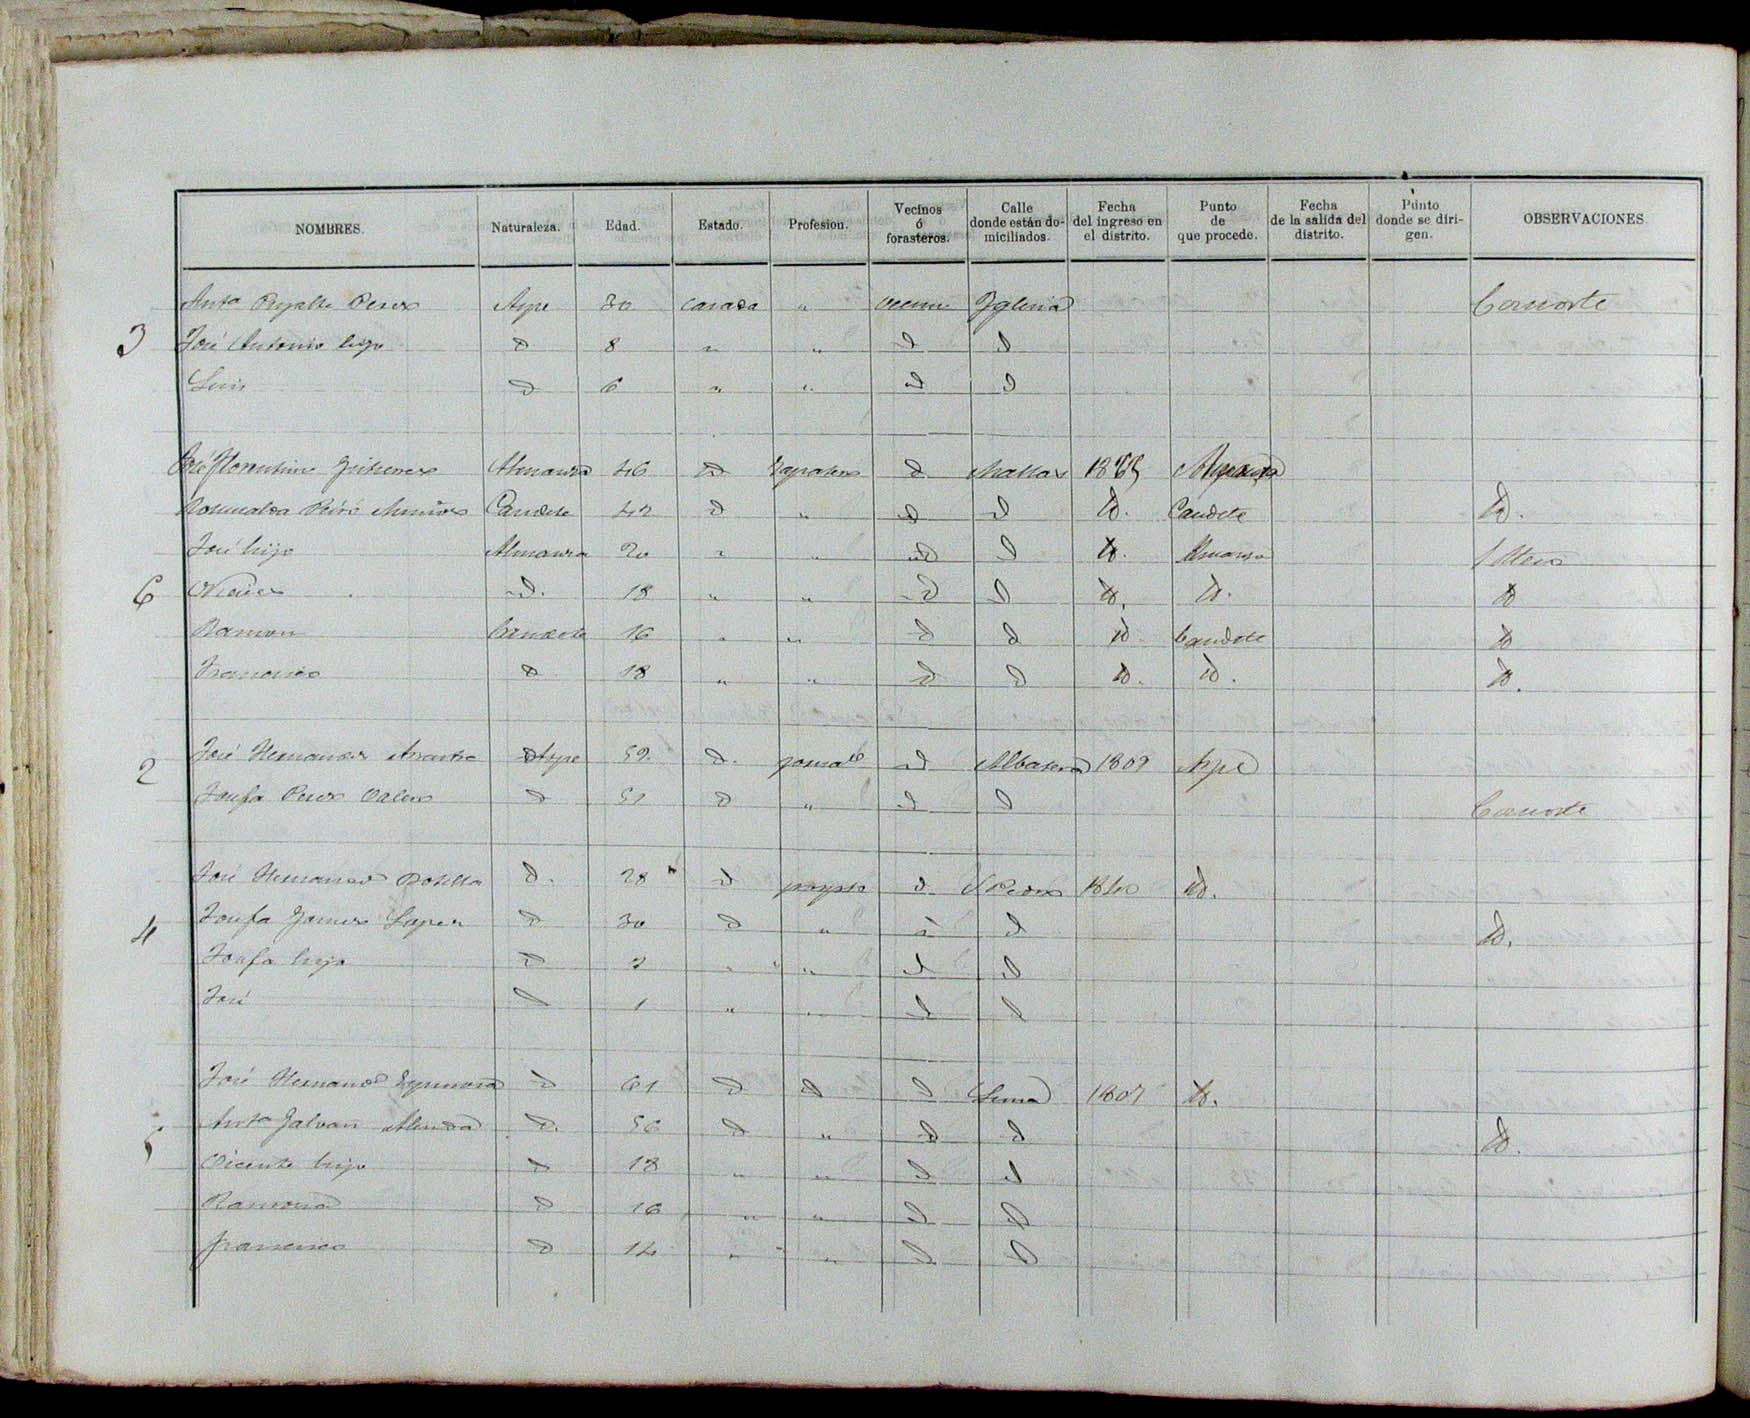 NOMBRES. Naturaleza. Edad. Estado. Profesion. Vecinos ó forasteros. Calle donde están domiciliados. Fecha del ingreso en el distrito. Punto de que procede. Fecha de la salida del distrito. Punto donde se dirigen. OBSERVACIONES
Anta Perez Aspe 30 casada " vecino Iglesia Consorte
3 José Antonio hijo d 8 " " d d
Luis d 6 " " d d
José Florentino Gimenez Almansa 46 d Zapatero d 1865 Almansa
Romualda Caudete 42 d " d d Id. Caudete Id.
José hijo Almansa 20 " " d d Id. Almansa Soltero
6 d. 18 " " d d Id. Id. Id
Ramon Caudete 16 " " d d Id. Caudete Id
Francisco d 18 " " d d Id. Id. Id.
2 José Hernandez Aspe 59 d. jornalo d Albatera 1809 Aspe
Josefa Perez d 51 d " d d Consorte
José Hernandez Botella d. 28 d d. S Pedro 1840 Id.
4 Josefa Gomez Lopez d 30 d " d d Id.
Josefa hija d 2 " " d d
José d 1 " " d d
José Hernandz d 61 d d d 1807 Id.
5 Anta Galvan d. 56 d " d d Id.
Vicente hijo d 18 " " d d
Ramona d 16 " " d d
Francisco d 14 " " d d